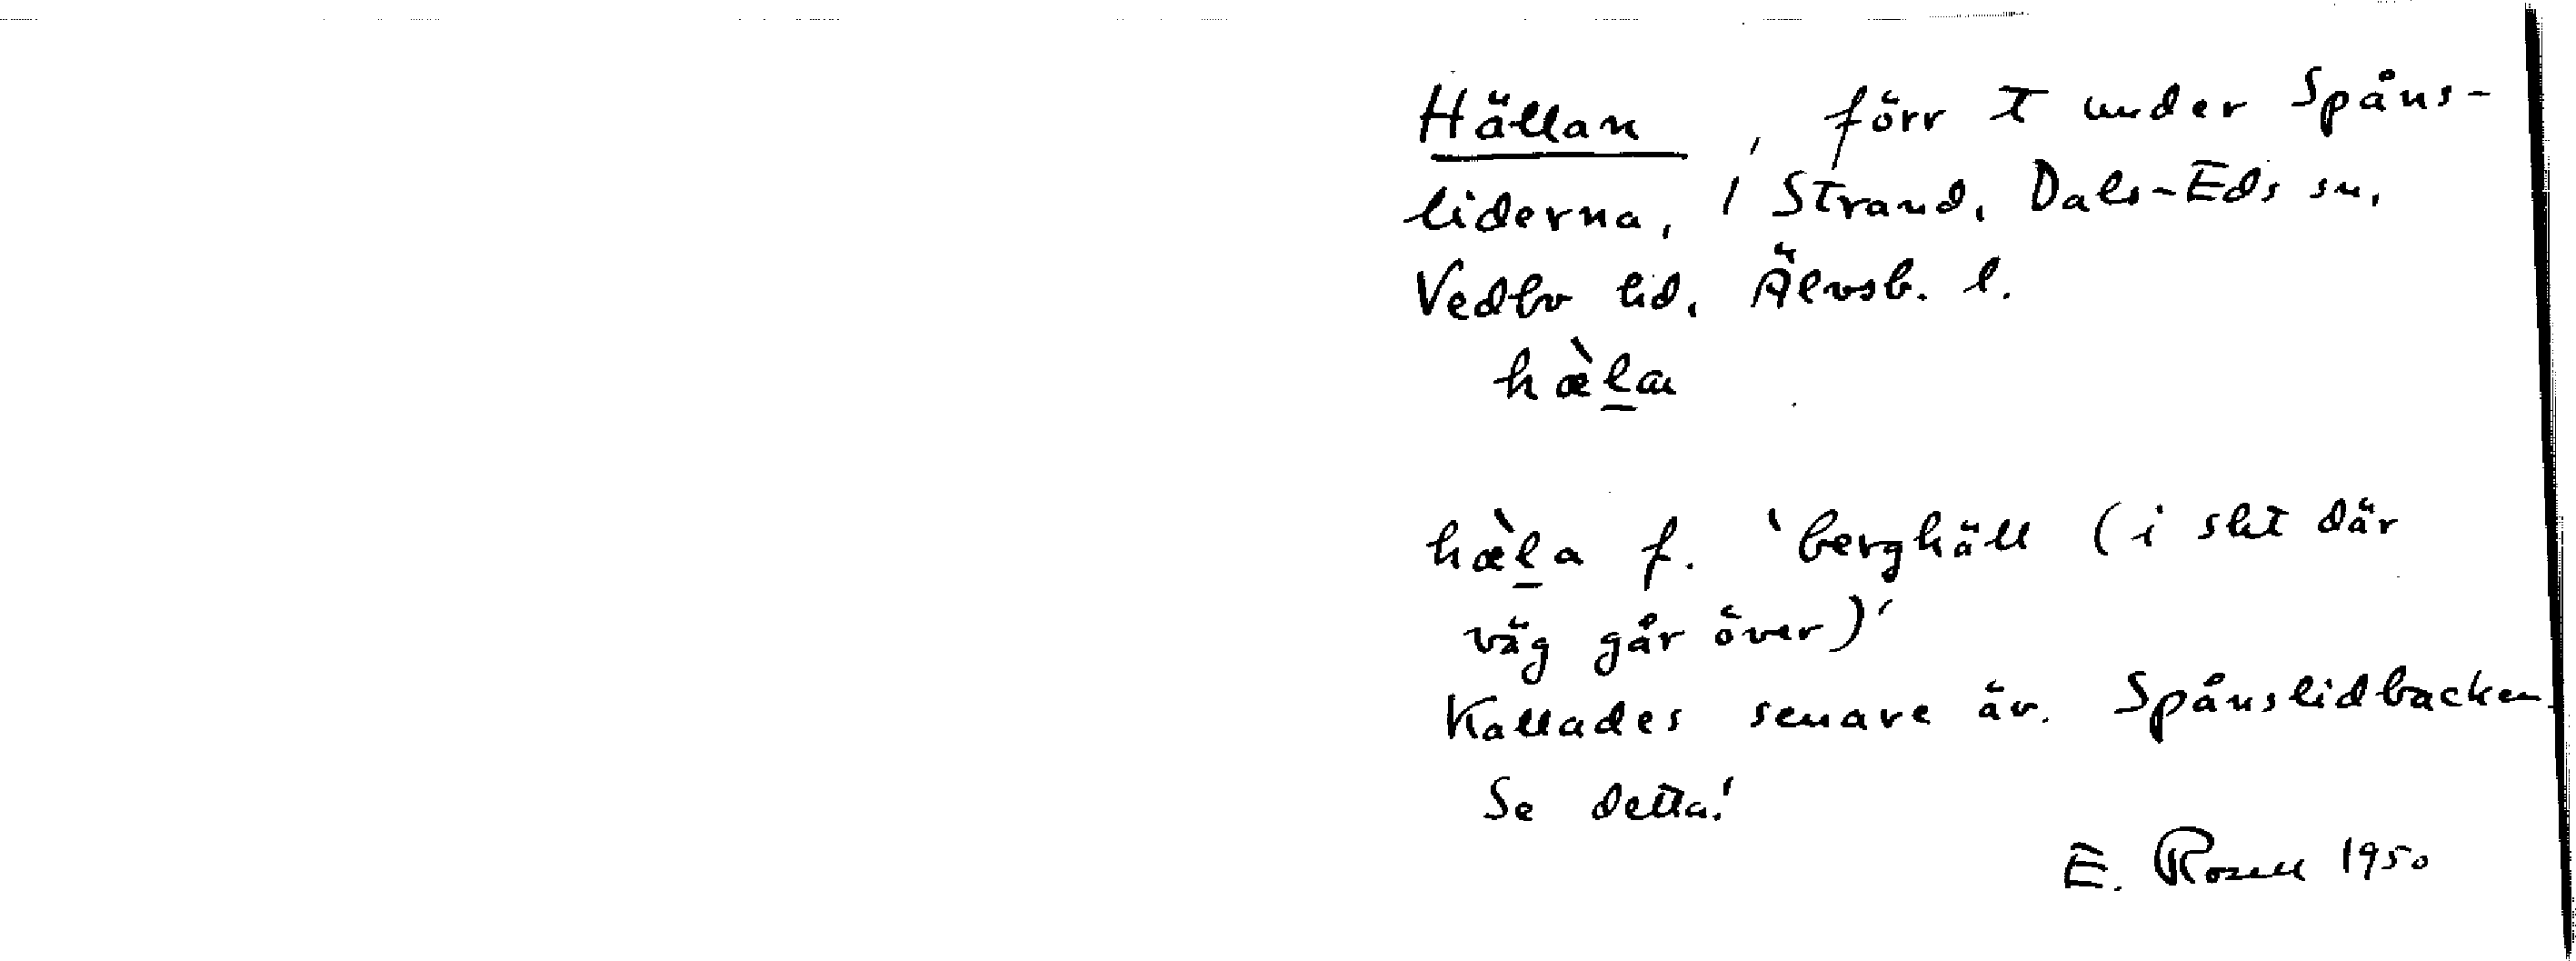 Hällan, förr T under Spåns-
liderna, i Strand, Dals-Eds sn,
Vedbo hd, Älvsb. l.
hæ̀l̲a
hæ̀l̲a f. 'berghäll (i sht där
väg går över)'
Kallades senare äv. Spånslidbacken.
Se detta!
E. Rosell 1950